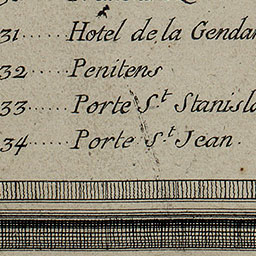 31 ····· Hotel de la Gendar
32 ····· Penitens
33 ····· Porte St Stanisla
34 ····· Porte St Jean.